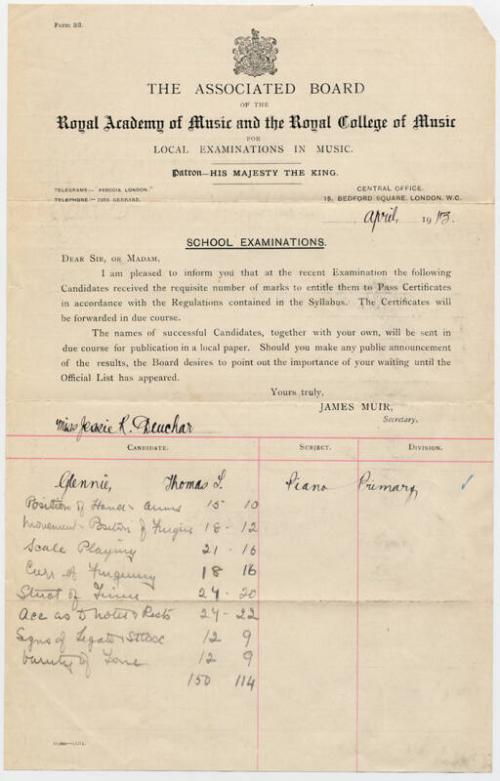 THE ASSOCIATED BOARD
OF THE
Royal Academy of Music and the Royal College of Music
FOR
LOCAL EXAMINATIONS IN MUSIC.
Patron—HIS MAJESTY THE KING.
TELEGRAMS— LONDON."
TELEPHONE— GERRARD.
CENTRAL OFFICE.
15, BEDFORD SQUARE, LONDON, W.C.
April, 1913.
SCHOOL EXAMINATIONS.
DEAR SIR, OR MADAM,
I am pleased to inform you that at the recent Examination the following
Candidates received the requisite number of marks to entitle them to Pass Certificates
in accordance with the Regulations contained in the Syllabus. The Certificates will
be forwarded in due course.
The names of successful Candidates, together with your own, will be sent in
due course for publication in a local paper. Should you make any public announcement
of the results, the Board desires to point out the importance of your waiting until the
Official List has appeared.
Yours truly,
JAMES MUIR,
Secretary.
Miss Jessie R. Deuchar
CANDIDATE. SUBJECT. DIVISION.
Glennie, Thomas L. Piano Primary
Position of Hands & Arms 15 10
Movement & Position of Fingers 18 - 12
Scale Playing 21 - 16
of Fingering 18 16
Strict of Time 24 - 20
Acc as to Notes & Rests 24 - 22
Signs of Legato & Stacc 12 9
Variety of Tone 12 9
150 114